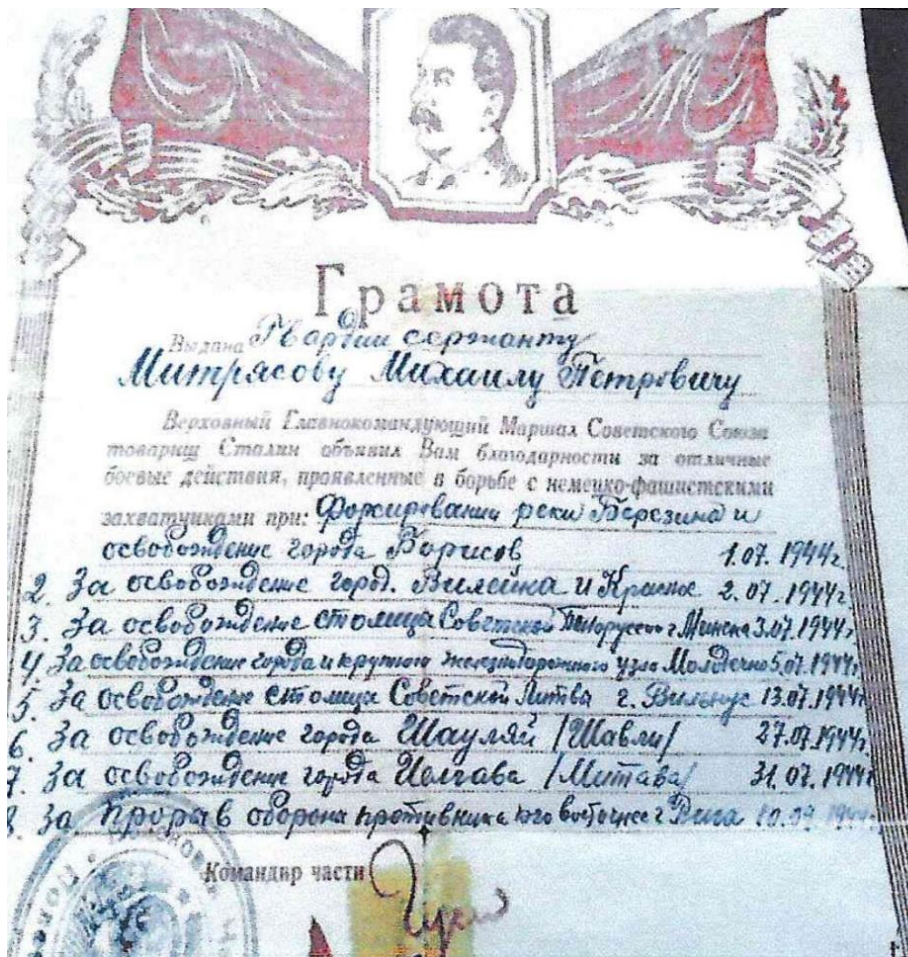 Грамота
Выдана Гвардии сержанту
Митрясову Михаилу Петровичу
Верховный Главнокомандующий Маршал Советского Союза
товарищ Сталин объявил Вам благодарности за отличные
боевые действия, проявленные в борьбе с немецко-фашистскими
захватчиками при: Форсировании реки Березина и
освобождение города Борисов 1.07.1944г.
2. За освобождение город. Вилейка и Красное 2.07.1944г.
3. За освобождение столица Советской Белоруссии г. Минска 3.07.1944г
4 За освобождение города и крупного железнодорожного узла Молодечно 5.07.1944г.
5. За освобождение столица Советской Литва г. Вильнус 13.07.1944г.
6. За освобождение города Шауляй /Шавли/ 27.07.1944г.
7. За освобождение города Иелгава /Митава/ 31.07.1944г
За прорыв оборона противника юго восточнее г Рига 10.09.1944г
Командир части